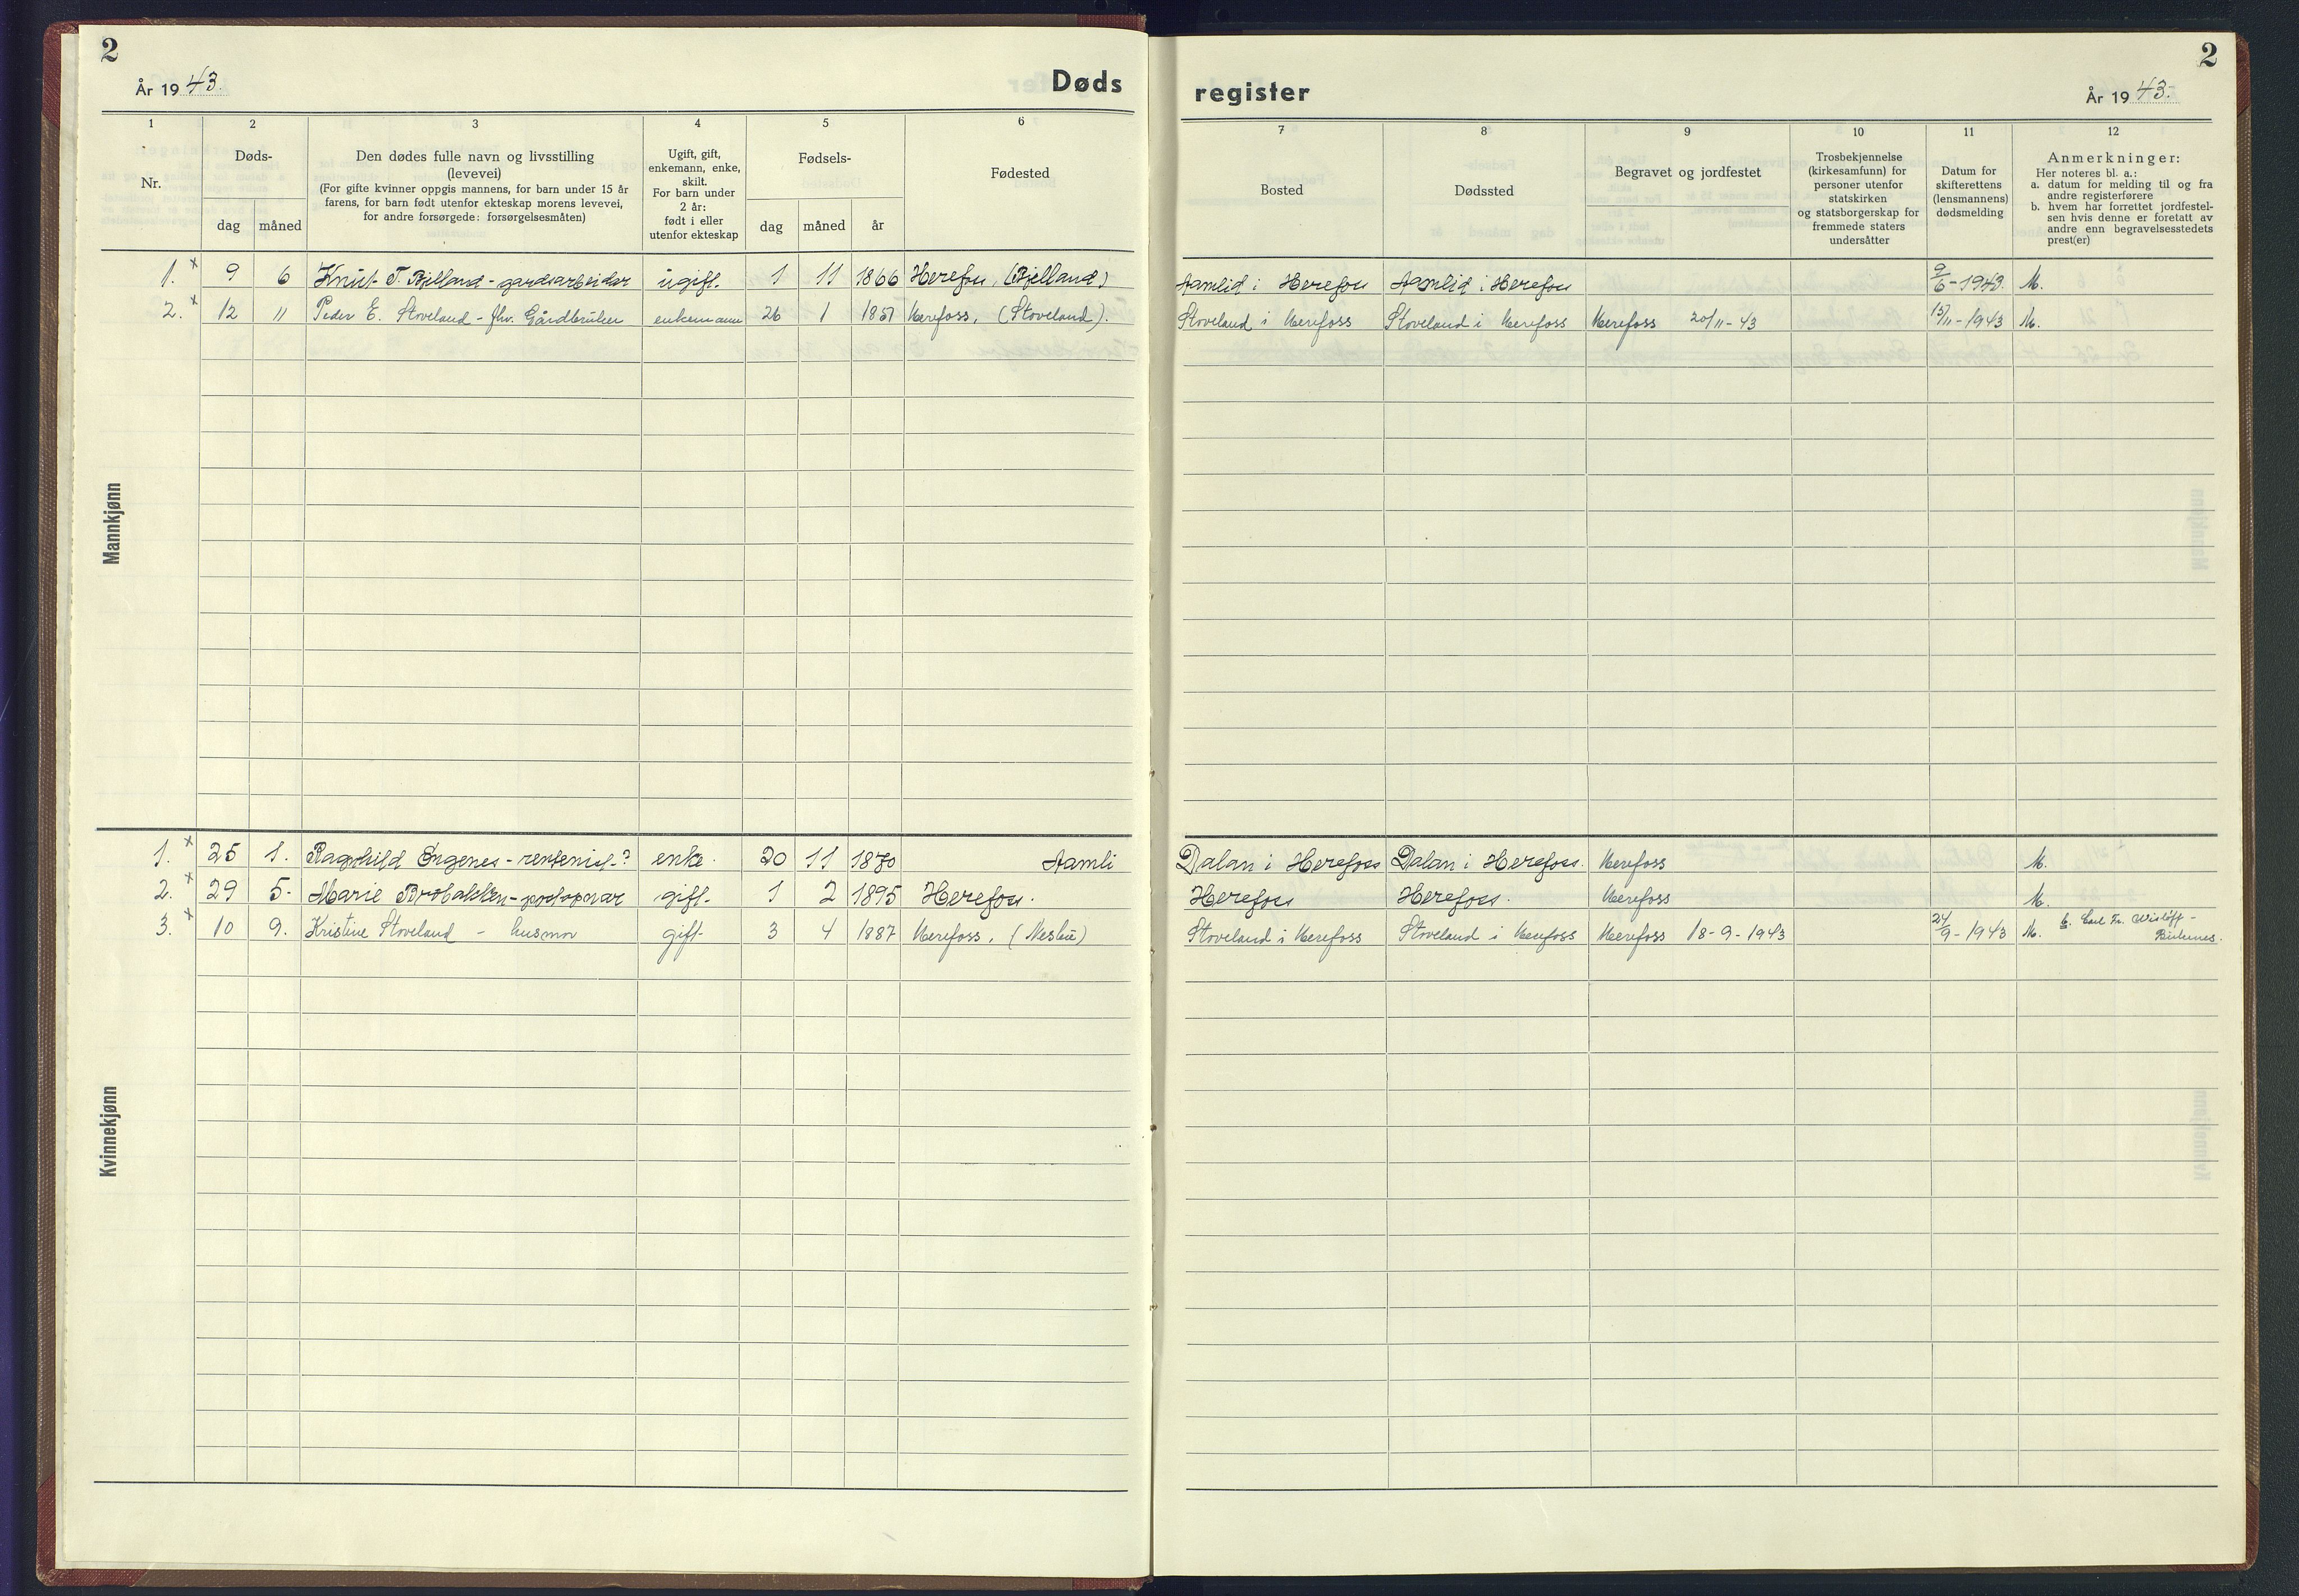 2
År 1943.
Døds
register
År 1943.
2
1
2
3
4
5
6
7
8
9
10
11
12
Nr.
Døds-
dag
måned
Den dødes fulle navn og livsstilling
(levevei)
(For gifte kvinner oppgis mannens, for barn under 15 år
farens, for barn født utenfor ekteskap morens levevei,
for andre forsørgede: forsørgelsesmåten)
Ugift, gift,
enkemann, enke,
skilt.
For barn under
2 år:
født i eller
utenfor ekteskap
Fødsels-
dag
måned
år
Fødested
Bosted
Dødssted
Begravet og jordfestet
Trosbekjennelse
(kirkesamfunn) for
personer utenfor
statskirken
og statsborgerskap for
fremmede staters
undersåtter
Datum for
skifterettens
(lensmannens)
dødsmelding
Anmerkninger:
Her noteres bl. a.:
a. datum for melding til og fra
andre registerførere
b. hvem har forrettet jordfestel-
sen hvis denne er foretatt av
andre enn begravelsesstedets
prest(er)
Mannkjønn
1. x 9 6 Knut T. Bjelland - gardsarbeider ugift. 1 11 1866 Herefoss, (Bjelland) Aamlid i Herefoss Aamlid i Herefoss 9/6-1943. M.
2. x 12 11 Peder E. Stoveland - fhv. Gårdbruker enkemann 26 1 1857 Herefoss, (Stoveland). Stoveland i Herefoss Stoveland i Herefoss Herefoss 20/11-43 15/11-1943 M.
Kvinnekjønn
1. x 25 1. Ragnhild Engenes - rentenist.? enke. 20 11 1870 Aamli Dalan i Herefoss Dalan i Herefoss. Herefoss M.
2. x 29 5. Marie Brobakken - postopnar gift. 1 2 1895 Herefoss. Herefoss Herefoss. Herefoss M.
3. x 10 9. Kristine Stoveland - husmor gift. 3 4 1887 Herefoss, (Neslie) Stoveland i Herefoss Stoveland i Herefoss Herefoss 18-9-1943 24/9-1943 M. b. Carl Fr. Wisløff -
Birkenes.